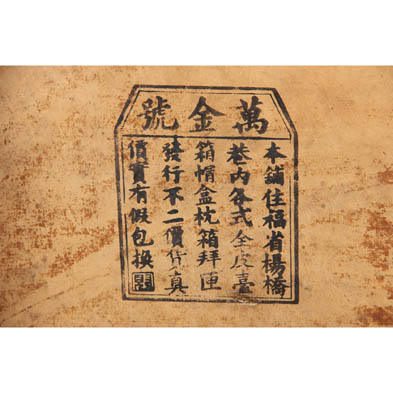 萬金號
本舖住福省楊橋
巷內各式全皮臺
箱帽盒枕箱拜匣
發行不二價貨真
價實有假包換